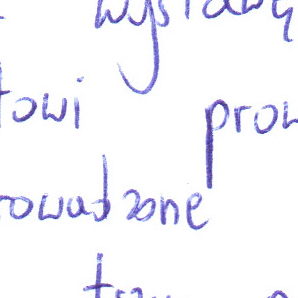 wystawę
towi prow
rowadzone